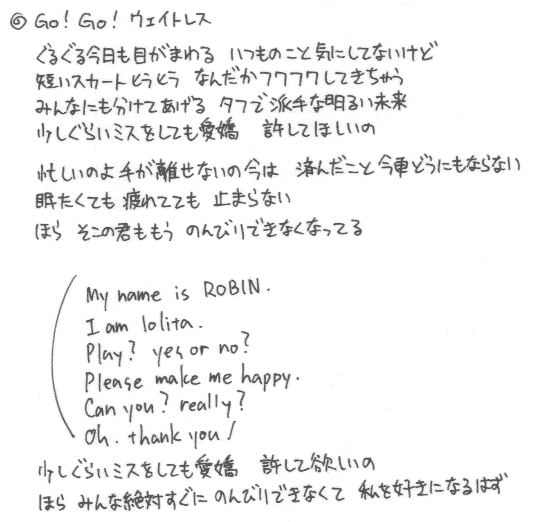 ◎ Go! Go! ウェイトレス
ぐるぐる今日も目がまわる いつものこと気にしてないけど
短いスカートとうとう なんだかフワフワしてきちゃう
みんなにも分けてあげる タフで派手な明るい未来
少しぐらいミスをしても愛嬌 許してほしいの
忙しいのよ手が離せないの今は 済んだこと今更どうにもならない
眠たくても 疲れてても 止まらない
ほら そこの君ももう のんびりできなくなってる
My name is ROBIN.
I am lolita.
Play? yes or no?
Please make me happy.
Can you? really?
Oh. thank you!
少しぐらいミスをしても愛嬌 許して欲しいの
ほら みんな絶対すぐに のんびりできなくて 私を好きになるはず